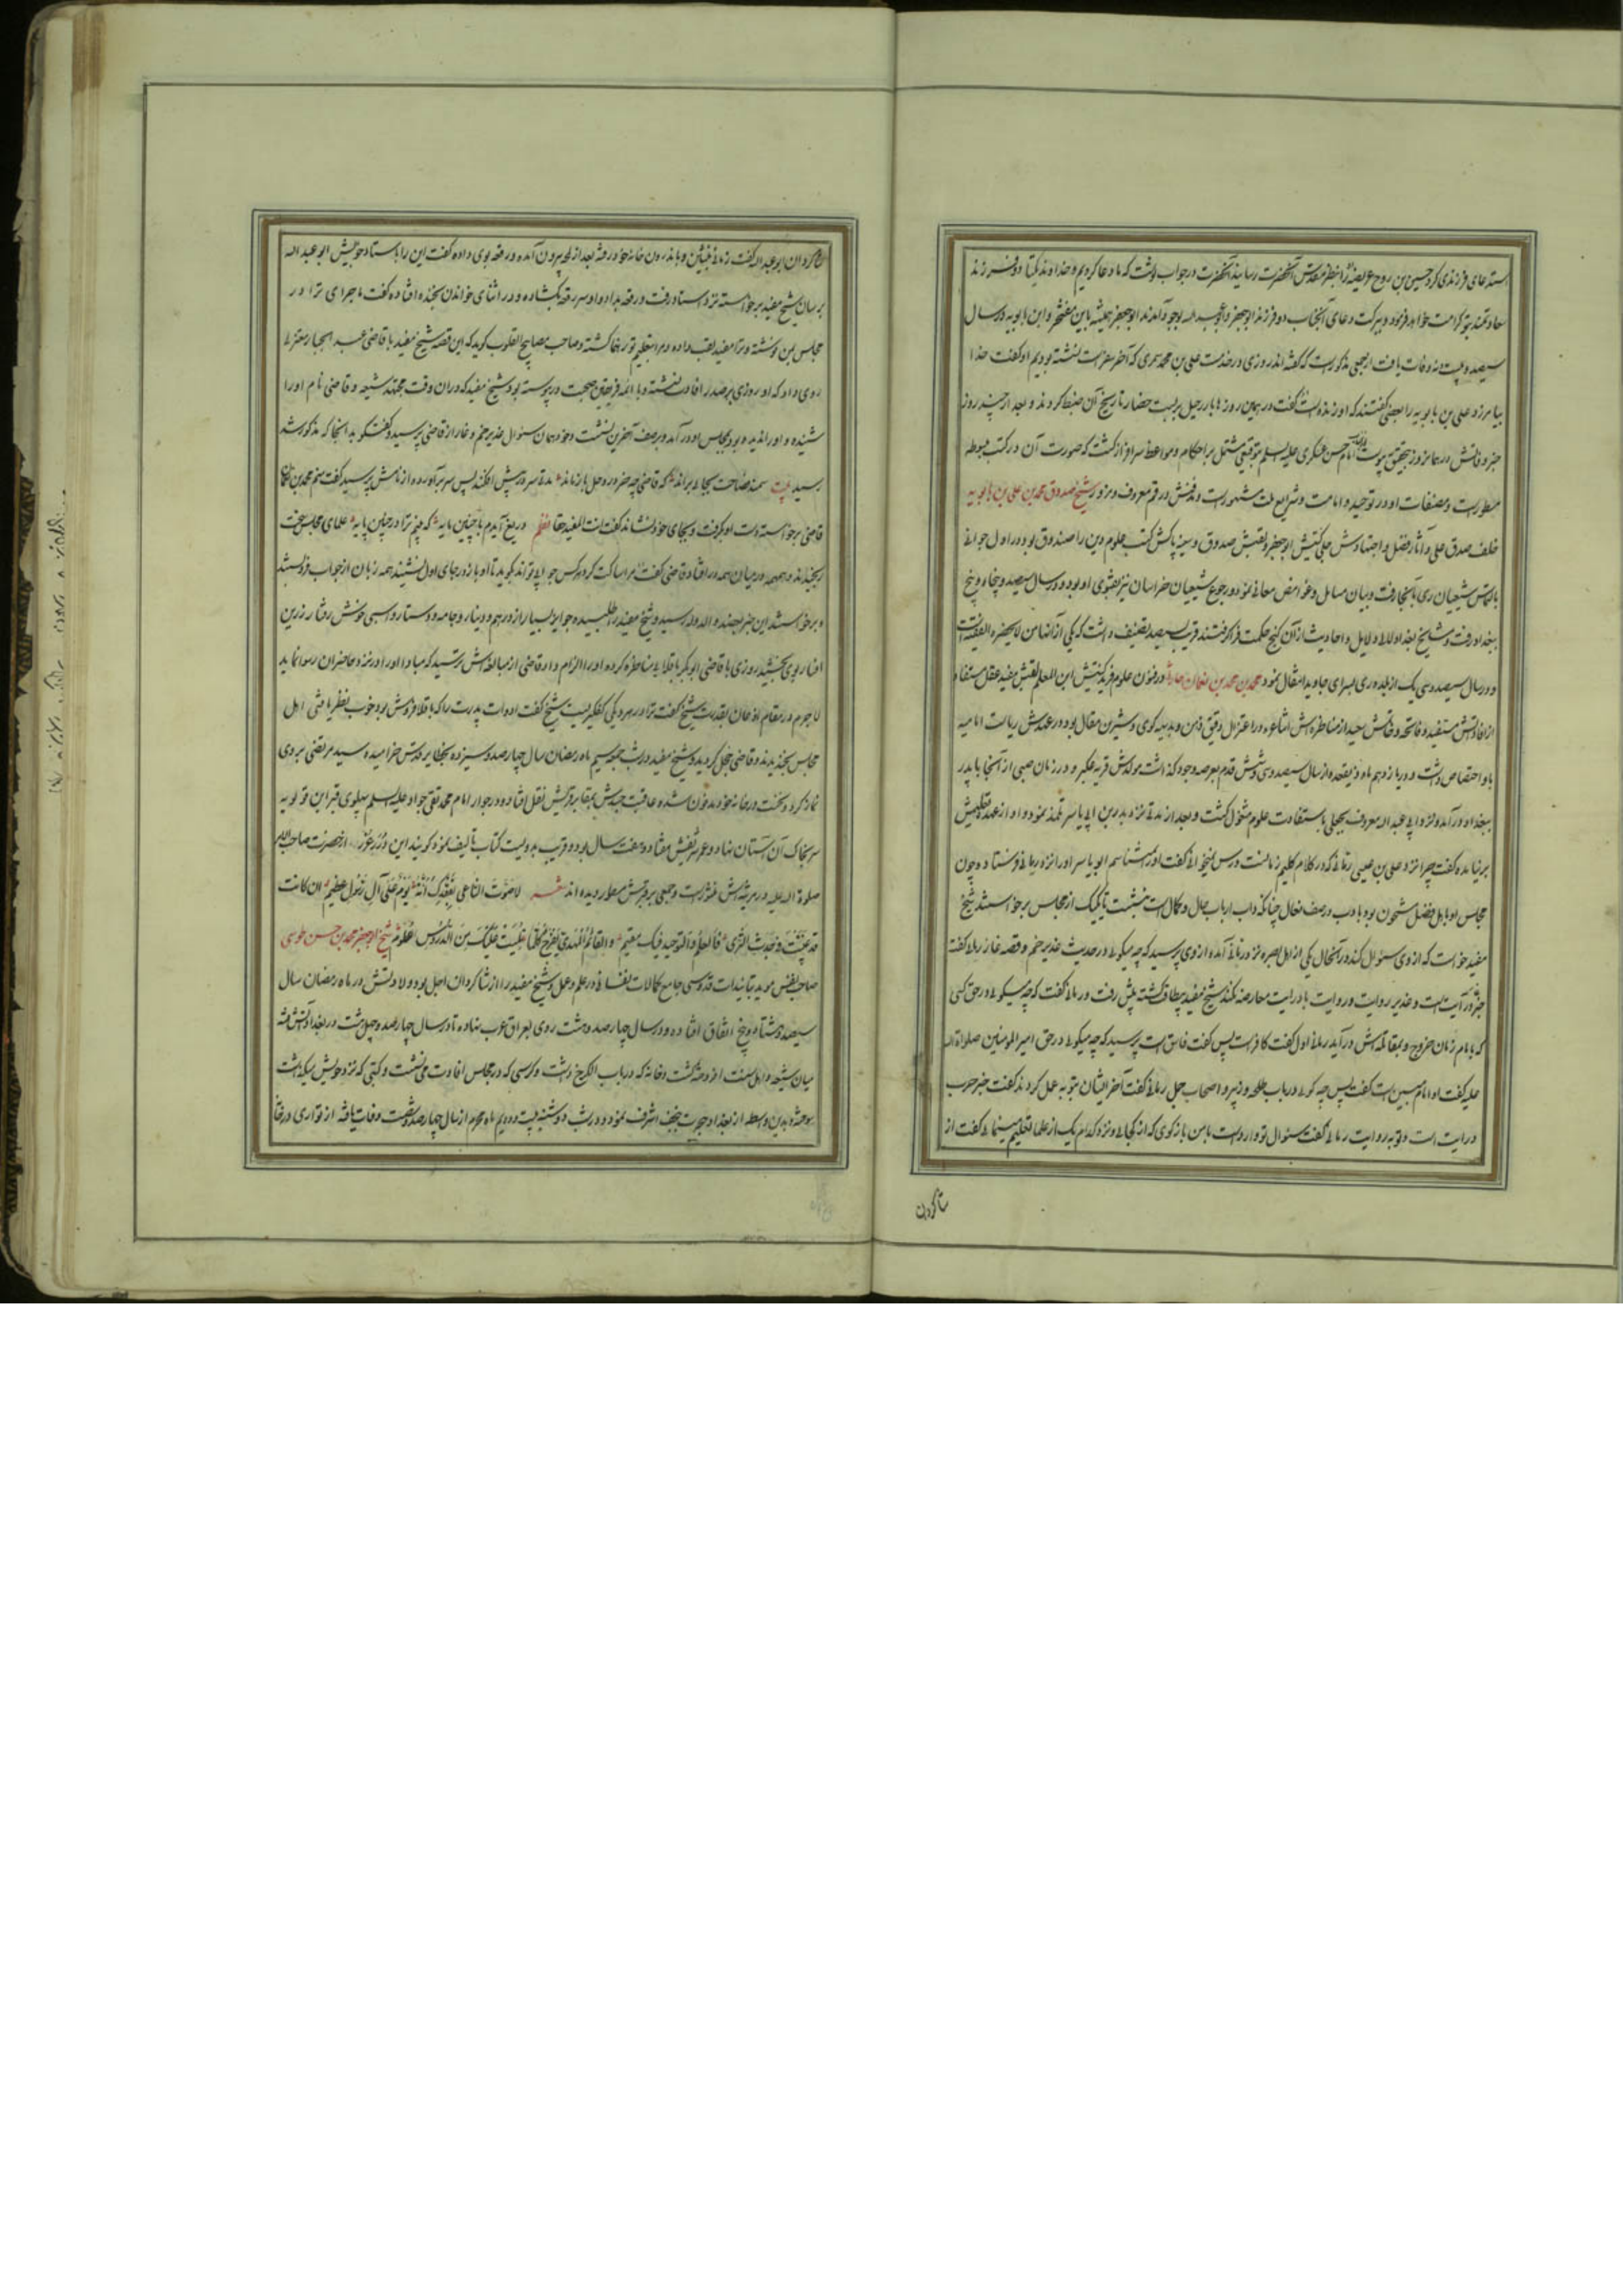 استدعای فرزندی کرد حسین بن روح عریضه را بنظر مقدس آنحضرت رسانید آنحضرت در جواب نوشت که ما دعا کردیم و خداوند یکتا دو فرزند
سعادتمند بتو کرامت خواهد فرمود و ببرکت دعای آنجناب دو فرزند ابوجعفر و ابوعبدالله بوجود آمدند ابوجعفر همیشه باین مفتخر و ابن بابویه در سال
سیصد و بیست و نه وفات یافت از جمعی مذکورست که گفته‌اند روزی در خدمت علی بن محمد سمری که آخر سفراست نشسته بودیم او گفت خدا
بیامرزد علی بن بابویه را بعضی گفتند که او زنده است گفت در همین روزها بار رحیل بربست حضار تاریخ آن ضبط کردند و بعد از چند روز
خبر وفاتش در همان روز بتحقیق پیوست امام حسن عسکری علیه السلم بتوقیعی مشتمل بر احکام و مواعظ سرافراز گشت که صورت آن در کتب مبسوطه
مسطورست و مصنفات او در توحید و امامت و شرایع ملت مشهورست و مدفنش در قم معروف و مزور شیخ صدوق محمد بن علی بن بابویه
خلف صدق علی و آثار فضل و اجتهادش جلی کنیتش ابوجعفر و لقبش صدوق و سینه پاکش کتب علوم دین را صندوق بود در اول جوانی
بالتماس شیعیان ری بآنجا رفت و بیان مسایل و غوامض معانی نمود و رجوع شیعیان خراسان نیز بفتوی او بود و در سال سیصد و پنجاه و پنج
ببغداد رفت و مشایخ بغداد لالی دلایل و احادیث از آن گنج حکمت فرا گرفتند قریب بسیصد تصنیف داشت که یکی از آنها من لایحضره الفقیه است
و در سال سیصد و سی یک از بغداد ری بسرای جاوید انتقال نمود محمد بن محمد بن نعمان حارثی در فنون علوم فرید کنیتش ابن المعلم لقبش مفید عقل مستفاد
از افادتش مستفید و فاتحه و خاتمتش سعید از مناظره‌اش اشاعره در اعتزال دقیق ذهن و بدیهه گوی و شیرین مقال بود در عهدش ریاست امامیه
باو اختصاص داشت و در یازدهم ماه ذیقعده از سال سیصد و سی و شش قدم بعرصه وجود گذاشت مولدش قریه عکبر و در زمان صبی از آنجا با پدر
ببغداد در آمد و نزد ابی عبدالله معروف بجعلی باستفادت علوم مشغول گشت و بعد از مدتی نزد بدر بن ابی یاسر تلمذ نمود و او از عهده تعلیمش
برنیامده گفت چرا نزد علی بن عیسی رمانی که در کلام کلیم زمانست درس نمیخوانی گفت او را نمیشناسم ابو یاسر او را نزد رمانی فرستاد و چون
مجلس او باهل فضل مشحون بود با ادب در صف نعال چنانکه داب ارباب حال و کمال است بنشست تا یک یک از مجلس برخواستند شیخ
مفید خواست که از وی سئوال کند در آنحال یکی از اهل بصره نزد رمانی آمده از وی پرسید که چه میگوئی در حدیث غدیر خم و قصه غار رمانی گفت
خبر غار درایت است و غدیر روایت و روایت با درایت معارضه نکند شیخ مفید بیطاقت گشته پیش رفت و رمانی گفت که چه میگوئی در حق کسی
که بامام زمان خروج و بمقاتله‌اش در آید رمانی اول گفت کافر است پس گفت فاسق است پرسید که چه میگوئی در حق امیر المومنین صلواة الله
علیه گفت او امام مبین است گفت پس چه گوئی در باب طلحه و زبیر و اصحاب جمل رمانی گفت آخر ایشان توبه عمل کردند گفت خبر حرب
درایت است و توبه روایت رمانی گفت سئوال تو وارد است با من باز گوی که از کجائی و نزد کدام یک از علما تعلیم مینمائی گفت از
شاگردان
شاگردان ابو عبدالله گفت زمانی بنشین و باندرون خانه خود رفته بعد از لمحه بیرون آمده و رقعه بوی داده گفت این را باستاد خویش ابو عبدالله
برسان شیخ مفید برخواسته نزد استاد رفت و رقعه بداد و او سر رقعه بگشاده و در اثنای خواندن بخنده افتاده گفت ماجرای ترا در
مجلس بمن نوشته و ترا مفید لقب داده و مرا بتعلیم تو رهنما گشته و صاحب مصابیح القلوب گوید که این قصه شیخ مفید با قاضی عبد الجبار معتزلی
روی داد که او روزی بر صدر افادت نشسته و با ائمه فریقین صحبت در پیوسته بود شیخ مفید که در آن وقت مجتهد شیعه و قاضی نام او را
شنیده و او را ندیده بود بمجلس او در آمد و بر صف آخرین نشست و خود همان سئوال غدیر خم و غار از قاضی پرسید و گفتگو بدانجا که مذکور شد
رسید بیت سمند فصاحت بجائی براند که قاضی چه خر در وحل باز ماند مدتی سر در پیش افکند پس سر برآورده از نامش پرسید گفت منم محمد بن نعمان
قاضی برخواسته دست او بگرفت و بجای خود بنشاند گفت انت المفید حقا نظم دریغ آیدم با چنین مایه که بینم ترا در چنین پایه علمای مجلس سخت
برنجیدند و همهمه در میان همه در افتاد قاضی گفت مرا ساکت کرد هر کس جوابی تواند گوید تا او باز در جای اول نشیند همه زبان از جواب فرو بستند
و برخواستند این خبر بعضد الدوله رسید و شیخ مفید را طلبیده جوایز بسیار از درهم و دینار و جامه و دستار و اسبی خوش رفتار زرین
افسار بوی بخشید روزی با قاضی ابو بکر باقلانی مناظره کرده او را الزام داد قاضی از مبالغه‌اش ترسید که مبادا او را در نزد حاضران رسوا نماید
لاجرم در مقام اذعان بقدرت شیخ گفت ترا در هر دیگی کفگیریست شیخ گفت ادوات پدرت را که باقلا فروش بود خوب بنظر داشتی اهل
مجلس بخندیدند و قاضی خجل گردید و شیخ مفید در شب جمعه سیم ماه رمضان سال چهار صد و سیزده بحظایر قدس خرامیده و سید مرتضی بر وی
نماز کرد و نخست در خانه خود مدفون شده عاقبت جسدش بمقابر قریش نقل افتاده و در جوار امام محمد تقی جواد علیه السلم بپهلوی قبر ابن قولویه
سر بخاک آن آستان نهاد و عمر شریفش هفتاد و هفت سال بود و قریب بدویست کتاب تالیف نمود گویند این درر غرر از حضرت صاحب الامر
صلوة الله علیه در مرثیه‌اش منثورست و جمعی بر قبرش مسطور دیده اند شعر لا صوت الناعی بفقدک انه یوم علی آل الرسول عظیم ان کانت
قد غیبت فی جدث الثری فالعلم و التوحید فیک مقیم و القائم المهدی یفرح کلما تلیت علیک من الدروس علوم شیخ ابوجعفر محمد بن حسن طوسی
صاحب نفس موید بتائیدات قدوسی جامع کمالات نفسانی در علم و عمل و شیخ مفید را از شاگردان اجل بود و ولادتش در ماه رمضان سال
سیصد و هشتاد و پنج اتفاق افتاده و در سال چهار صد و هشت روی بعراق عرب نهاده تا در سال چهار صد و چهل و هشت در بغداد آتش فتنه
میان شیعه و اهل سنت افروخته گشت و خانه که در باب الکرخ داشت و کرسی که در مجلس افادت می نشست و کتبی که نزد خویش میگذاشت
سوخته شد بدین واسطه از بغداد هجرت بنجف اشرف نمود و در شب دوشنبه بیست و دویم ماه محرم از سال چهار صد و شصت وفات یافته از تواری